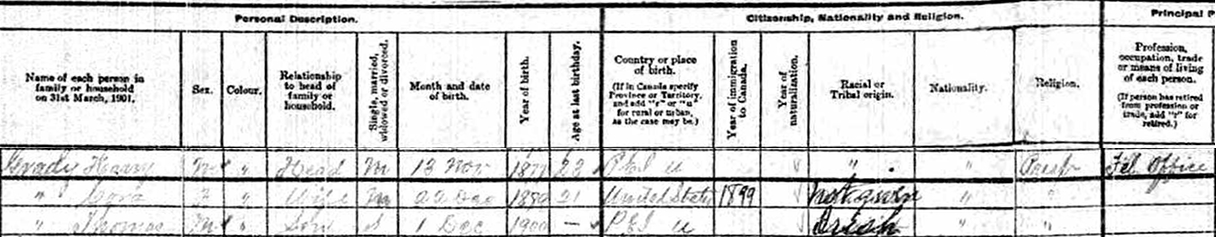 Personal Description. Citizenship, Nationality and Religion. Principal P
Name of each person in family or household on 31st March, 1901. Sex. Colour. Relationship to head of family or household. Single, married, widowed or divorced. Month and date of birth. Year of birth. Age at last birthday. Country or place of birth. (If in Canada specify Province or Territory, and add "r" or "u" for rural or urban, as the case may be.) Year of immigration to Canada. Year of naturalization. Racial or Tribal origin. Nationality. Religion. Profession, occupation, trade or means of living of each person. (If person has retired from profession or trade, add "r" for retired.)
Grady Henry M " Head M 13 Nov 1877 23 PEI u " " Presb Tel Office
" Cora F " Wife M 22 Dec 21 United States 1899 not given " "
" Thomas M " Son S 1 Dec 1900 — PEI u " "